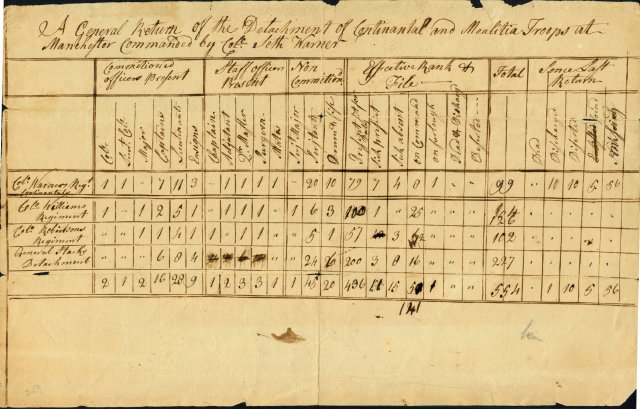 A General Return of the Detachment of Continantal and Mealitia Troops at
Manchester Commanded by Colo. Seth Warner
Commitioned officers Present | Staff officers Present | Non Commition'd | Effective Rank & File | Total | Since Last Return
Colo. | Lieut Colo. | Major | Captains | Lieutenants | Ensigns | Chaplain | Adjutant | Qr. Master | Surgeon | Mates | Serjt Major | Serjeants | Drums & Fifes | Sick present | Sick absent | on Command | on furlough | Dead | Discharged | Deserted
Colo. Warners Regt. Continantals | 1 | 1 | " | 7 | 11 | 3 | " | 1 | 1 | 1 | " | " | 20 | 10 | 79 | 7 | 4 | 8 | 1 | " | " | 99 | " | 10 | 10 | 5 | 56
Colo. Williams Regiment | 1 | " | 1 | 2 | 5 | 1 | " | 1 | 1 | 1 | " | 1 | 6 | 3 | 100 | 1 | " | 25 | " | " | " | 126
Colo. Robinsons Regiment | " | " | 1 | 1 | 4 | 1 | 1 | 1 | 1 | 1 | " | " | 5 | 1 | 57 | 3 | 102
General Starks Detachment | " | " | " | 6 | 8 | 4 | 24 | 6 | 200 | 3 | 8 | 16 | " | " | " | 227
2 | 1 | 2 | 16 | 28 | 9 | 1 | 2 | 3 | 3 | 1 | 1 | 45 | 20 | 436 | 11 | 15 | 1 | " | " | 554 | " | 10 | 10 | 5 | 56
141